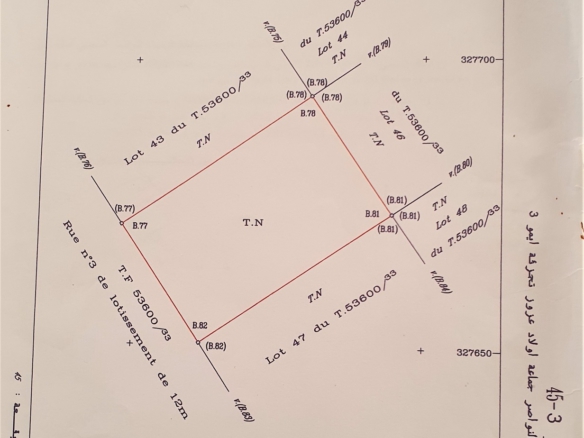 v.(B.75)
du T.53600/33
Lot 44
T.N
v.(B.79)
327700
(B.78)
(B.78)
(B.78)
B.78
Lot 43 du T.53600/33
T.N
du T.53600/33
Lot 46
T.N
v.(B.76)
v.(B.80)
(B.77)
B.77
T.N
(B.81)
B.81
(B.81)
(B.81)
T.N
Lot 48
du T.53600/33
v.(B.84)
T.F 53600/33
Rue n°3 de lotissement de 12m
T.N
Lot 47 du T.53600/33
B.82
(B.82)
327650
v.(B.83)
45-3
45 :